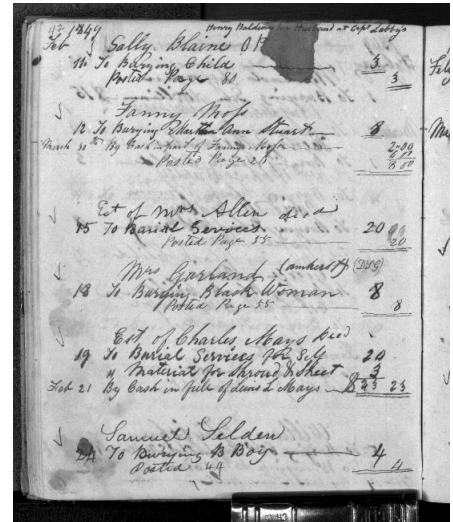 43 1849
Henry Baldwin her Husband at Capt Labby's
Feb Sally Blaine
To Burying Child 3
Posted Page 80 3
Fanny Moss
12 To Burying Martha Ann Stuart 8
March 30th By Cash in part of Fanny Moss 2.00
Posted Page 20 8 00
Est of Mrs Allen died
15 To Burial Services 20
Posted Page 55 20
Mrs Garland (amherst)
18 To Burying Black Woman 8
Posted Page 55 8
Est of Charles Mays Died
19 To Burial Services for Self 20
" Material for Shroud & Sheet 3
Feb 21 By Cash in full of Lewis L Mays 23 23
Samuel Selden
24 To Burying B Boy 4
Posted 44 4